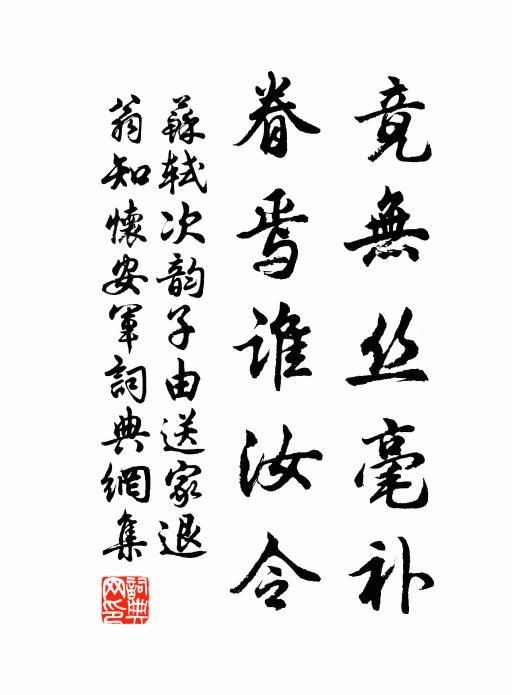 竟無丝毫补
眷焉谁汝令
蘇轼次韵子由送家退
翁知懷安軍詞典網集
詞典网印